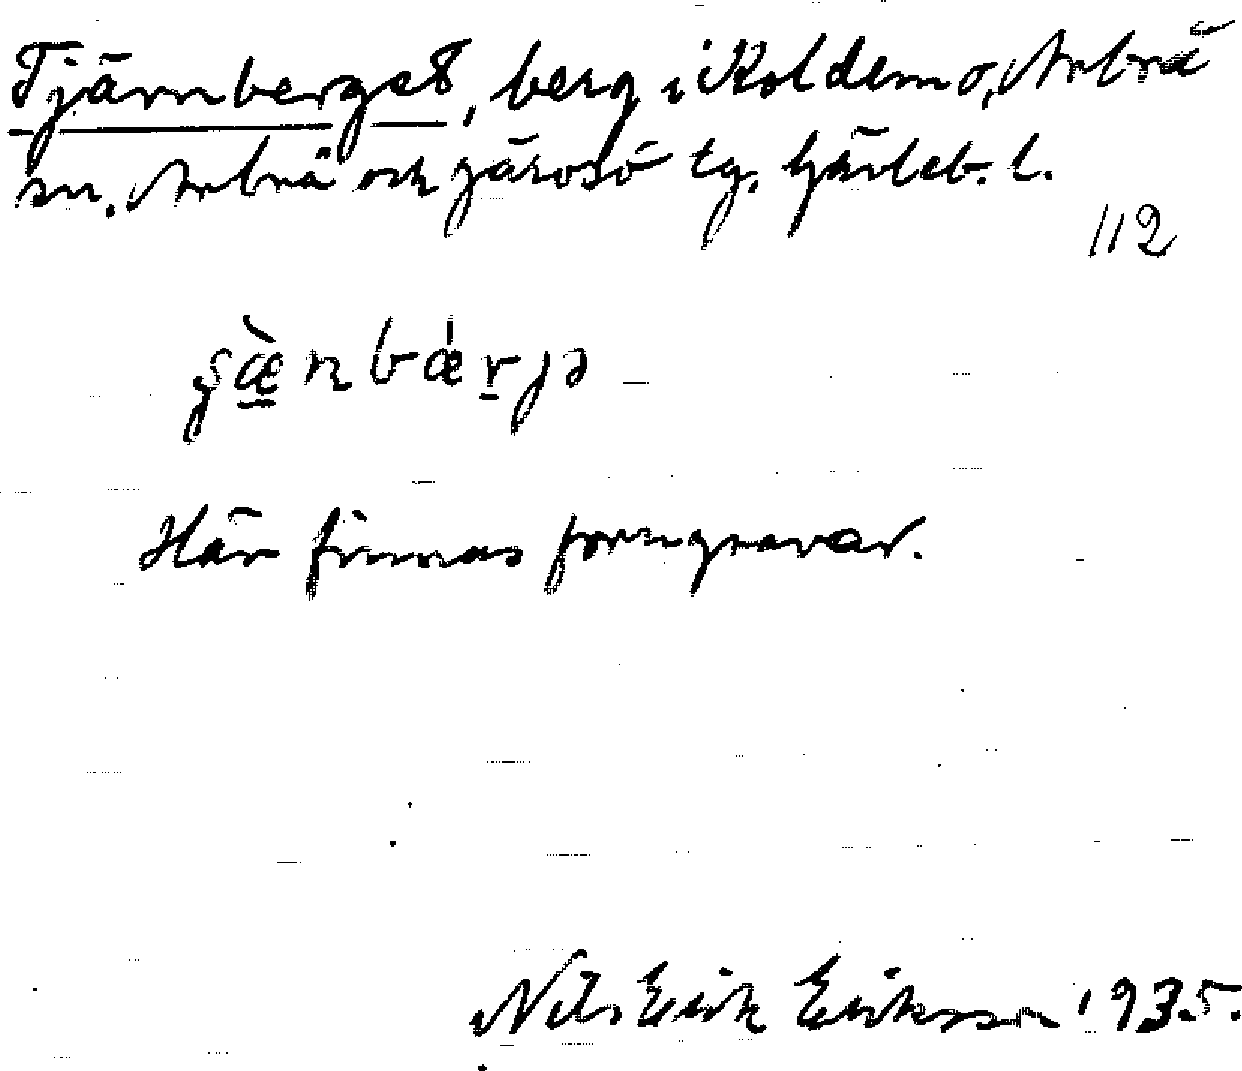 Tjärnberget, berg i Koldemo, Arbrå
sn. Arbrå och Järvsö tg. Gävleb. l.
112
Här finnas forngravar.
Nils Erik Eriksson 1935.